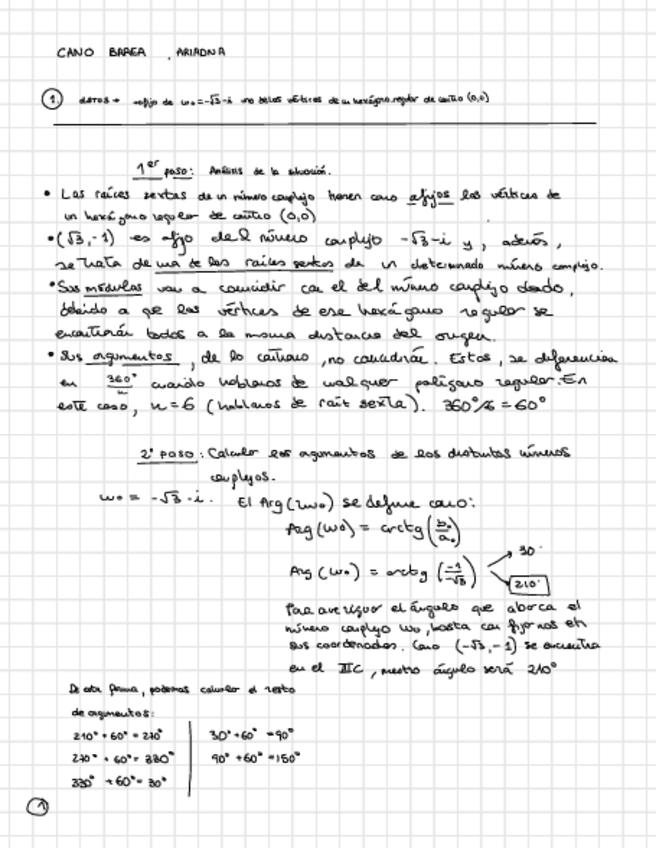 CANO BAREA, ARIADNA
① DATOS → afijo de w₀=-√3-i uno de los vértices de un hexágono regular de centro (0,0)
1er paso: Análisis de la situación.
• Las raíces sextas de un número complejo tienen como afijos los vértices de
un hexágono regular de centro (0,0)
• (√3,-1) es afijo del número complejo -√3-i y, además,
se trata de una de las raíces sextas de un determinado número complejo.
• Sus módulos van a coincidir con el del número complejo dado,
debido a que los vértices de ese hexágono regular se
encuentran todos a la misma distancia del origen.
• Sus argumentos, de lo contrario, no coincidirán. Estos, se diferencian
en 360°/n cuando hablamos de cualquier polígono regular. En
este caso, n=6 (hablamos de raíz sexta). 360°/6=60°
2º paso: Calcular los argumentos de los distintos números
complejos.
w₀ = -√3-i. El Arg(w₀) se define como:
Arg(w₀) = arctg(b₀/a₀)
Arg(w₀) = arctg(-1/-√3) 30° 210°
Para averiguar el ángulo que aborca el
número complejo w₀, basta con fijarnos en
sus coordenadas. Como (-√3,-1) se encuentra
en el IIIC, nuestro ángulo será 210°
De esta forma, podemos calcular el resto
de argumentos:
210° + 60° = 270° 30° + 60° = 90°
270° + 60° = 330° 90° + 60° = 150°
330° + 60° = 30°
①